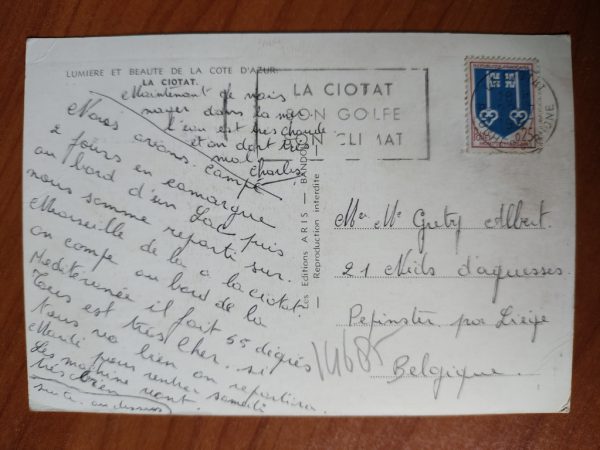 LUMIERE ET BEAUTE DE LA COTE D'AZUR
LA CIOTAT.
Maintenant je vais
nager dans la mer
l'eau est très chaude
et on dort très
mal.
Charles
Nous avions campé
2 Jours en camargue
au bord d'un Lac puis
nous somme reparti sur
Marseille de la a la ciotat
on campe au bord de la
Mediterenée il fait 55 degrés
Tous est très cher. si
tous va bien on repartira
Mardi pour rentrer samedi
Les machine vont
très bien
au dessus
Les Editions ARIS — BANDOL
Reproduction interdite
LA CIOTAT
SON GOLFE
SON CLIMAT
REPUBLIQUE FRANÇAISE
0,25
Mer Me Grety Albert.
21 Niels d'aguesses
Pepinster par Liège
Belgique.
14685